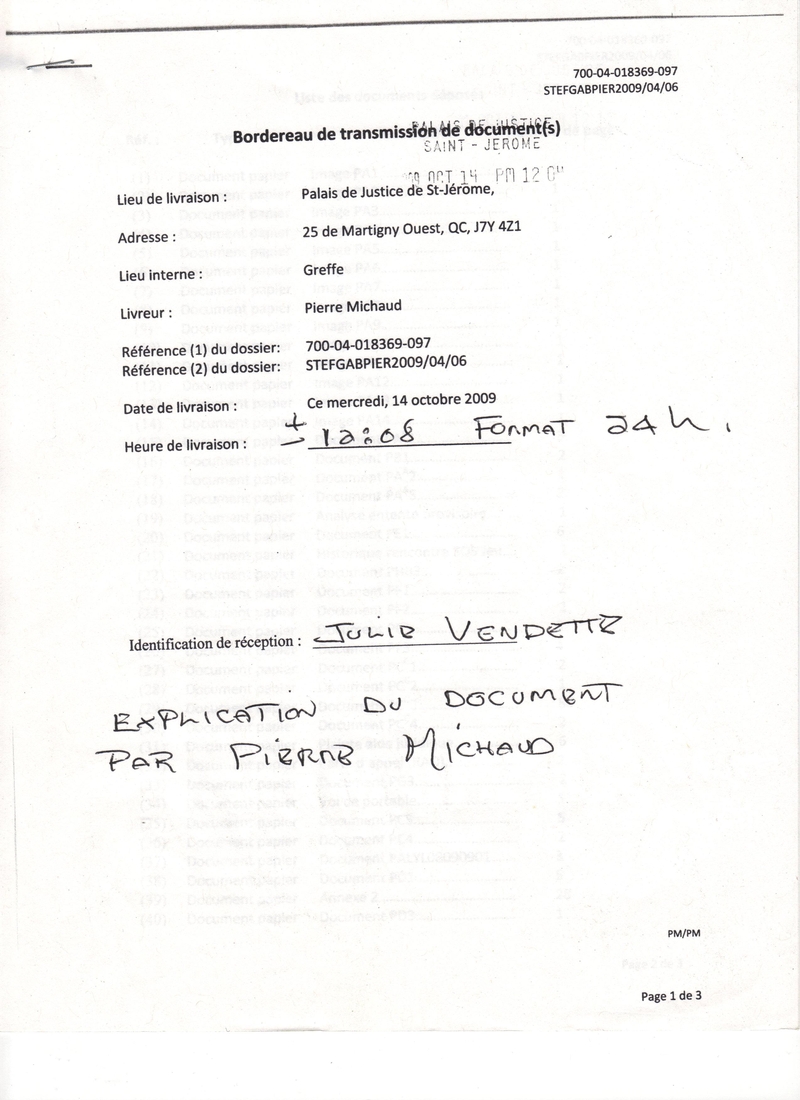 700-04-018369-097
STEFGABPIER2009/04/06
Bordereau de transmission de document(s)
PALAIS DE JUSTICE
SAINT - JEROME
OCT 14 PM 12
Lieu de livraison : Palais de Justice de St-Jérôme,
Adresse : 25 de Martigny Ouest, QC, J7Y 4Z1
Lieu interne : Greffe
Livreur : Pierre Michaud
Référence (1) du dossier: 700-04-018369-097
Référence (2) du dossier: STEFGABPIER2009/04/06
Date de livraison : Ce mercredi, 14 octobre 2009
Heure de livraison : ± 12:08 FORMAT 24h.
Identification de réception : JULIE VENDETTE
EXPLICATION DU DOCUMENT
PAR PIERRE MICHAUD
PM/PM
Page 1 de 3